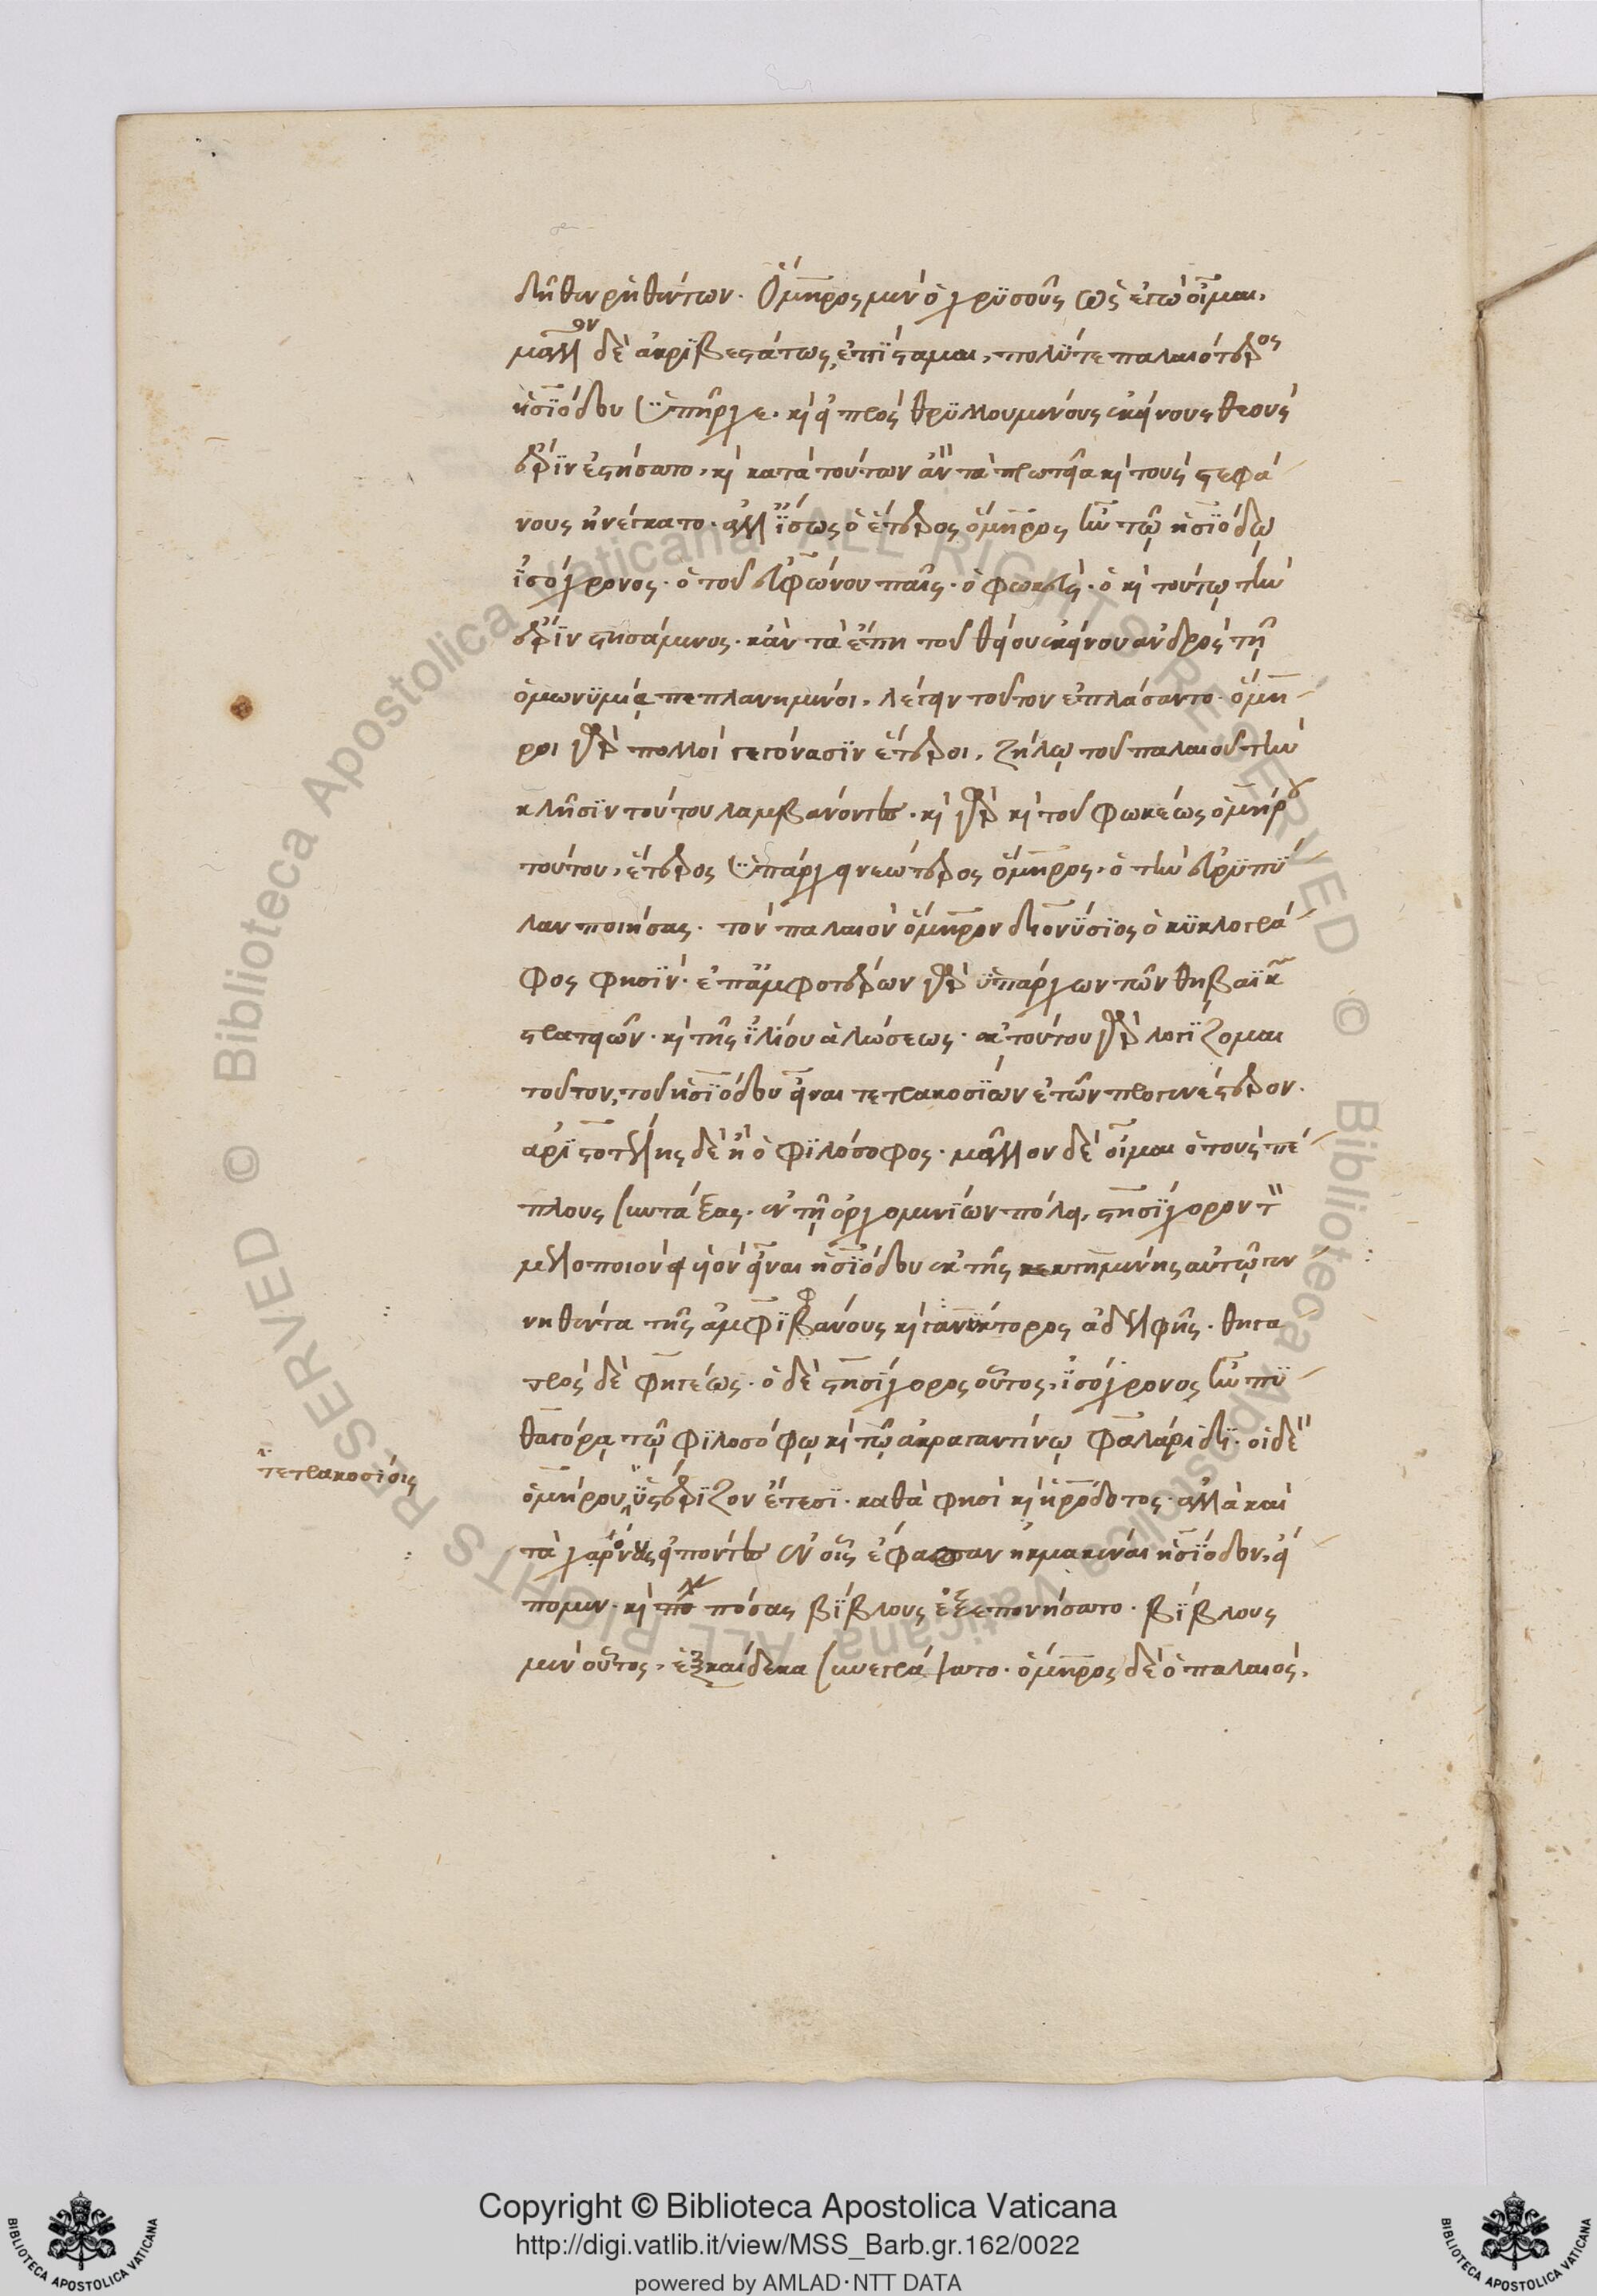 δῆθεν ῥηθέντων. Ὅμηρος μὲν ὁ χρυσοῦς ὡς ἐγὼ οἶμαι,
μᾶλλον δὲ ἀκριβεστάτως ἐπίσταμαι, πολύ τε παλαιότερος
ἡσιόδου ὑπῆρχε. καὶ εἰ πρὸς θρυλλουμένους ἐκείνους θεοὺς
ἔριν ἐστήσατο, καὶ κατὰ τούτων ἂν τὰ πρωτεῖα καὶ τοὺς στεφά
νους ἠνέγκατο. ἀλλ' ἴσως ὁ ἕτερος ὅμηρος ἦν τῷ ἡσιόδῳ
ἰσόχρονος. ὁ τοῦ εὐφρόνου παῖς. ὁ φωκεὺς. ὁ καὶ τούτῳ τὴν
ἔριν στησάμενος. κἂν τὰ ἔπη τοῦ θείου ἐκείνου ἀνδρὸς τῇ
ὁμωνυμίᾳ πεπλανημένοι, λέγειν τοῦτον ἐπλάσαντο. ὅμη
ροι γὰρ πολλοὶ γεγόνασιν ἕτεροι, ζήλῳ τοῦ παλαιοῦ τὴν
κλῆσιν τούτου λαμβάνοντες. καὶ γὰρ καὶ τοῦ φωκέως ὁμήρου
τούτου, ἕτερος ὑπάρχει νεώτερος ὅμηρος, ὁ τὴν εὐρυπύ
λαν ποιήσας. τὸν παλαιὸν ὅμηρον διονύσιος ὁ κυκλογρά
φος φησὶν. ἐπ' ἀμφοτέρων γὰρ ὑπάρχων τῶν θηβαϊκῶν
στρατειῶν. καὶ τῆς ἰλίου ἁλώσεως. ἐκ τούτου γὰρ λογίζομαι
τοῦτον, τοῦ ἡσιόδου εἶναι τετρακοσίων ἐτῶν προγενέστερον.
ἀριστοτέλης δὲ ἢ ὁ φιλόσοφος. μᾶλλον δὲ οἶμαι ὁ τοὺς πέ
πλους συντάξας. ἐν τῇ ὀρχομενίων πόλει, στησίχορον τὸν
μελοποιὸν υἱὸν εἶναι ἡσιόδου ἐκ τῆς κτημένης αὐτῷ γεν
νηθέντα τῆς ἀμφιφάνους καὶ γανύκτορος ἀδελφῆς. θυγα
τρὸς δὲ φηγέως. ὁ δὲ στησίχορος οὗτος, ἰσόχρονος ἦν πυ
θαγόρᾳ τῷ φιλοσόφῳ καὶ τῷ ἀκραγαντίνῳ φαλάριδι. οἱ δὲ
τετρακοσίοις
ὁμήρου ὑστερίζον ἔτεσι. καθὰ φησὶ καὶ ἡρόδοτος. ἀλλὰ καὶ
τὰ χρόνους εἰπόντες ἐν οἷς ἔφασαν ἠκμακέναι ἡσίοδον, εἴ
πομεν. καὶ πόσας βίβλους ἐξεπονήσατο. βίβλους
μὲν οὗτος, ἑξκαίδεκα συνεγράψατο. ὅμηρος δὲ ὁ παλαιὸς,
Copyright © Biblioteca Apostolica Vaticana
http://digi.vatlib.it/view/MSS_Barb.gr.162/0022
powered by AMLAD·NTT DATA